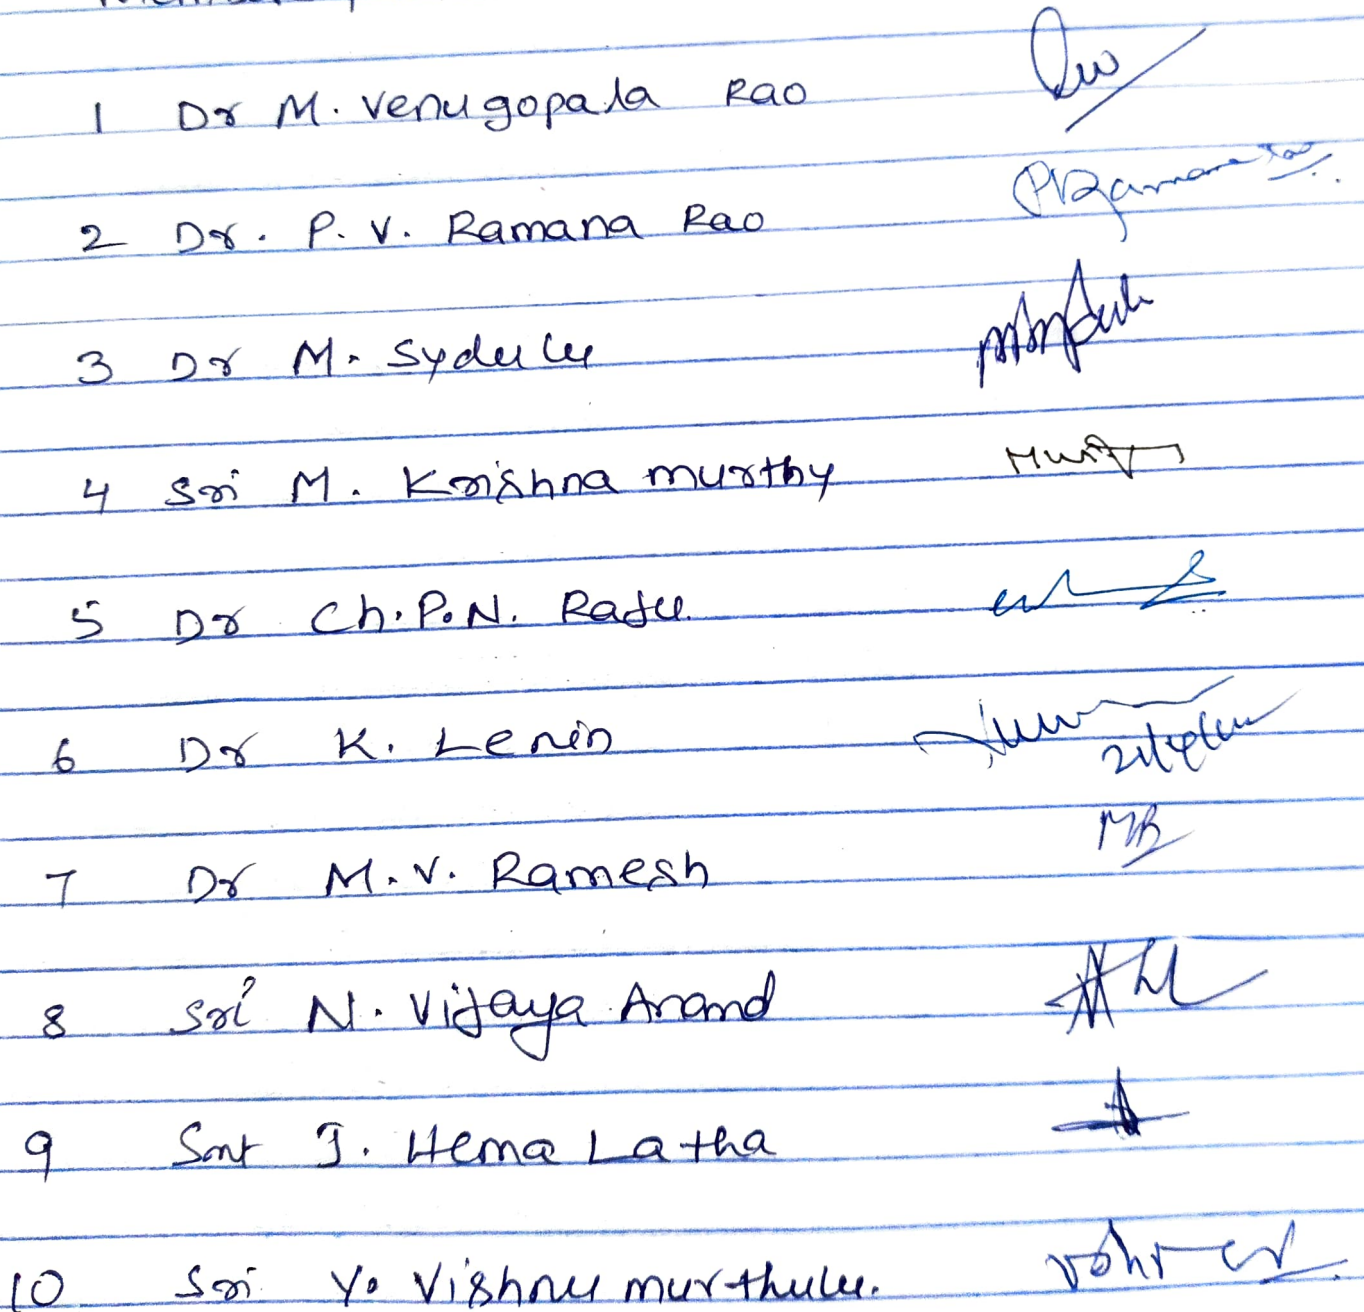 1 Dr M. Venugopala Rao
2 Dr. P. V. Ramana Rao PVRamana Rao
3 Dr M. Sydulu
4 Sri M. Krishna murthy
5 Dr Ch. P. N. Raju.
6 Dr K. Lenin
7 Dr M. V. Ramesh
8 Sri N. Vijaya Anand
9 Smt J. Hema Latha
10 Sri Y. Vishnu murthulu.